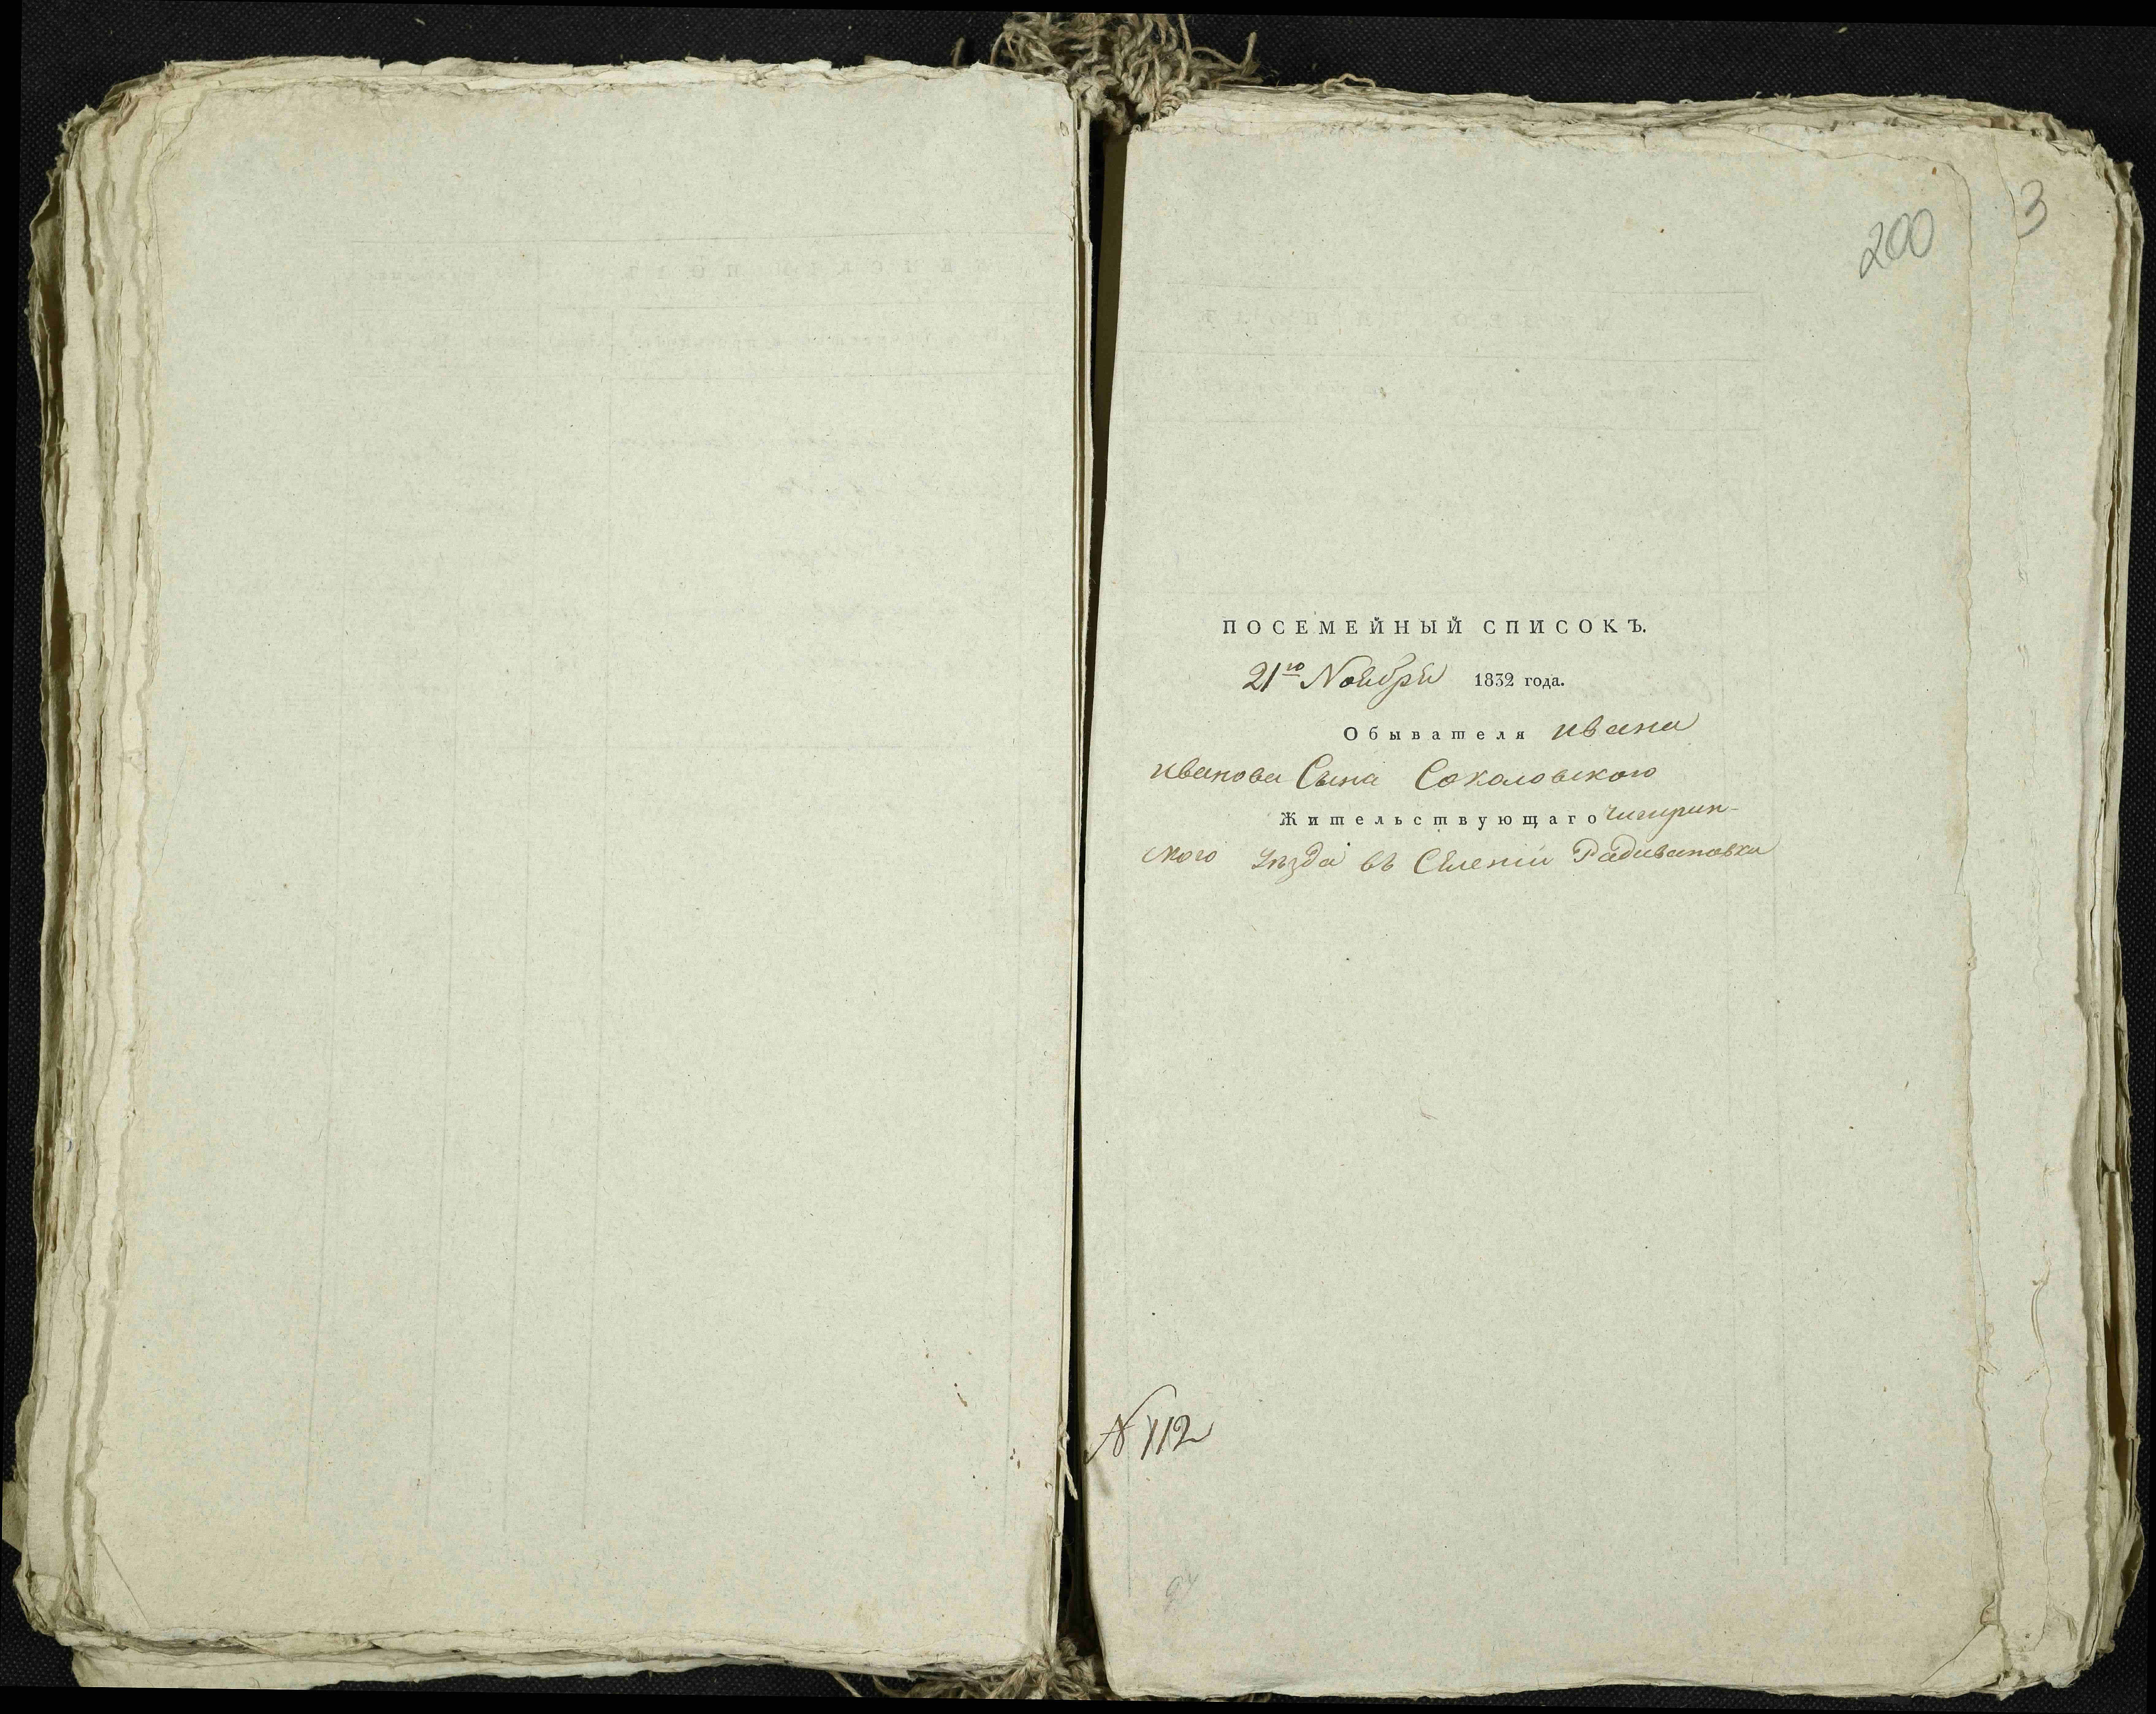 200
3
ПОСЕМЕЙНЫЙ СПИСОКЪ.
21го Ноября 1832 года.
Обывателя Ивана
Иванова Сына Соколовского
Жительствующаго Чигирин-
ского уѣзда въ Селеніи Радивановки
N 112